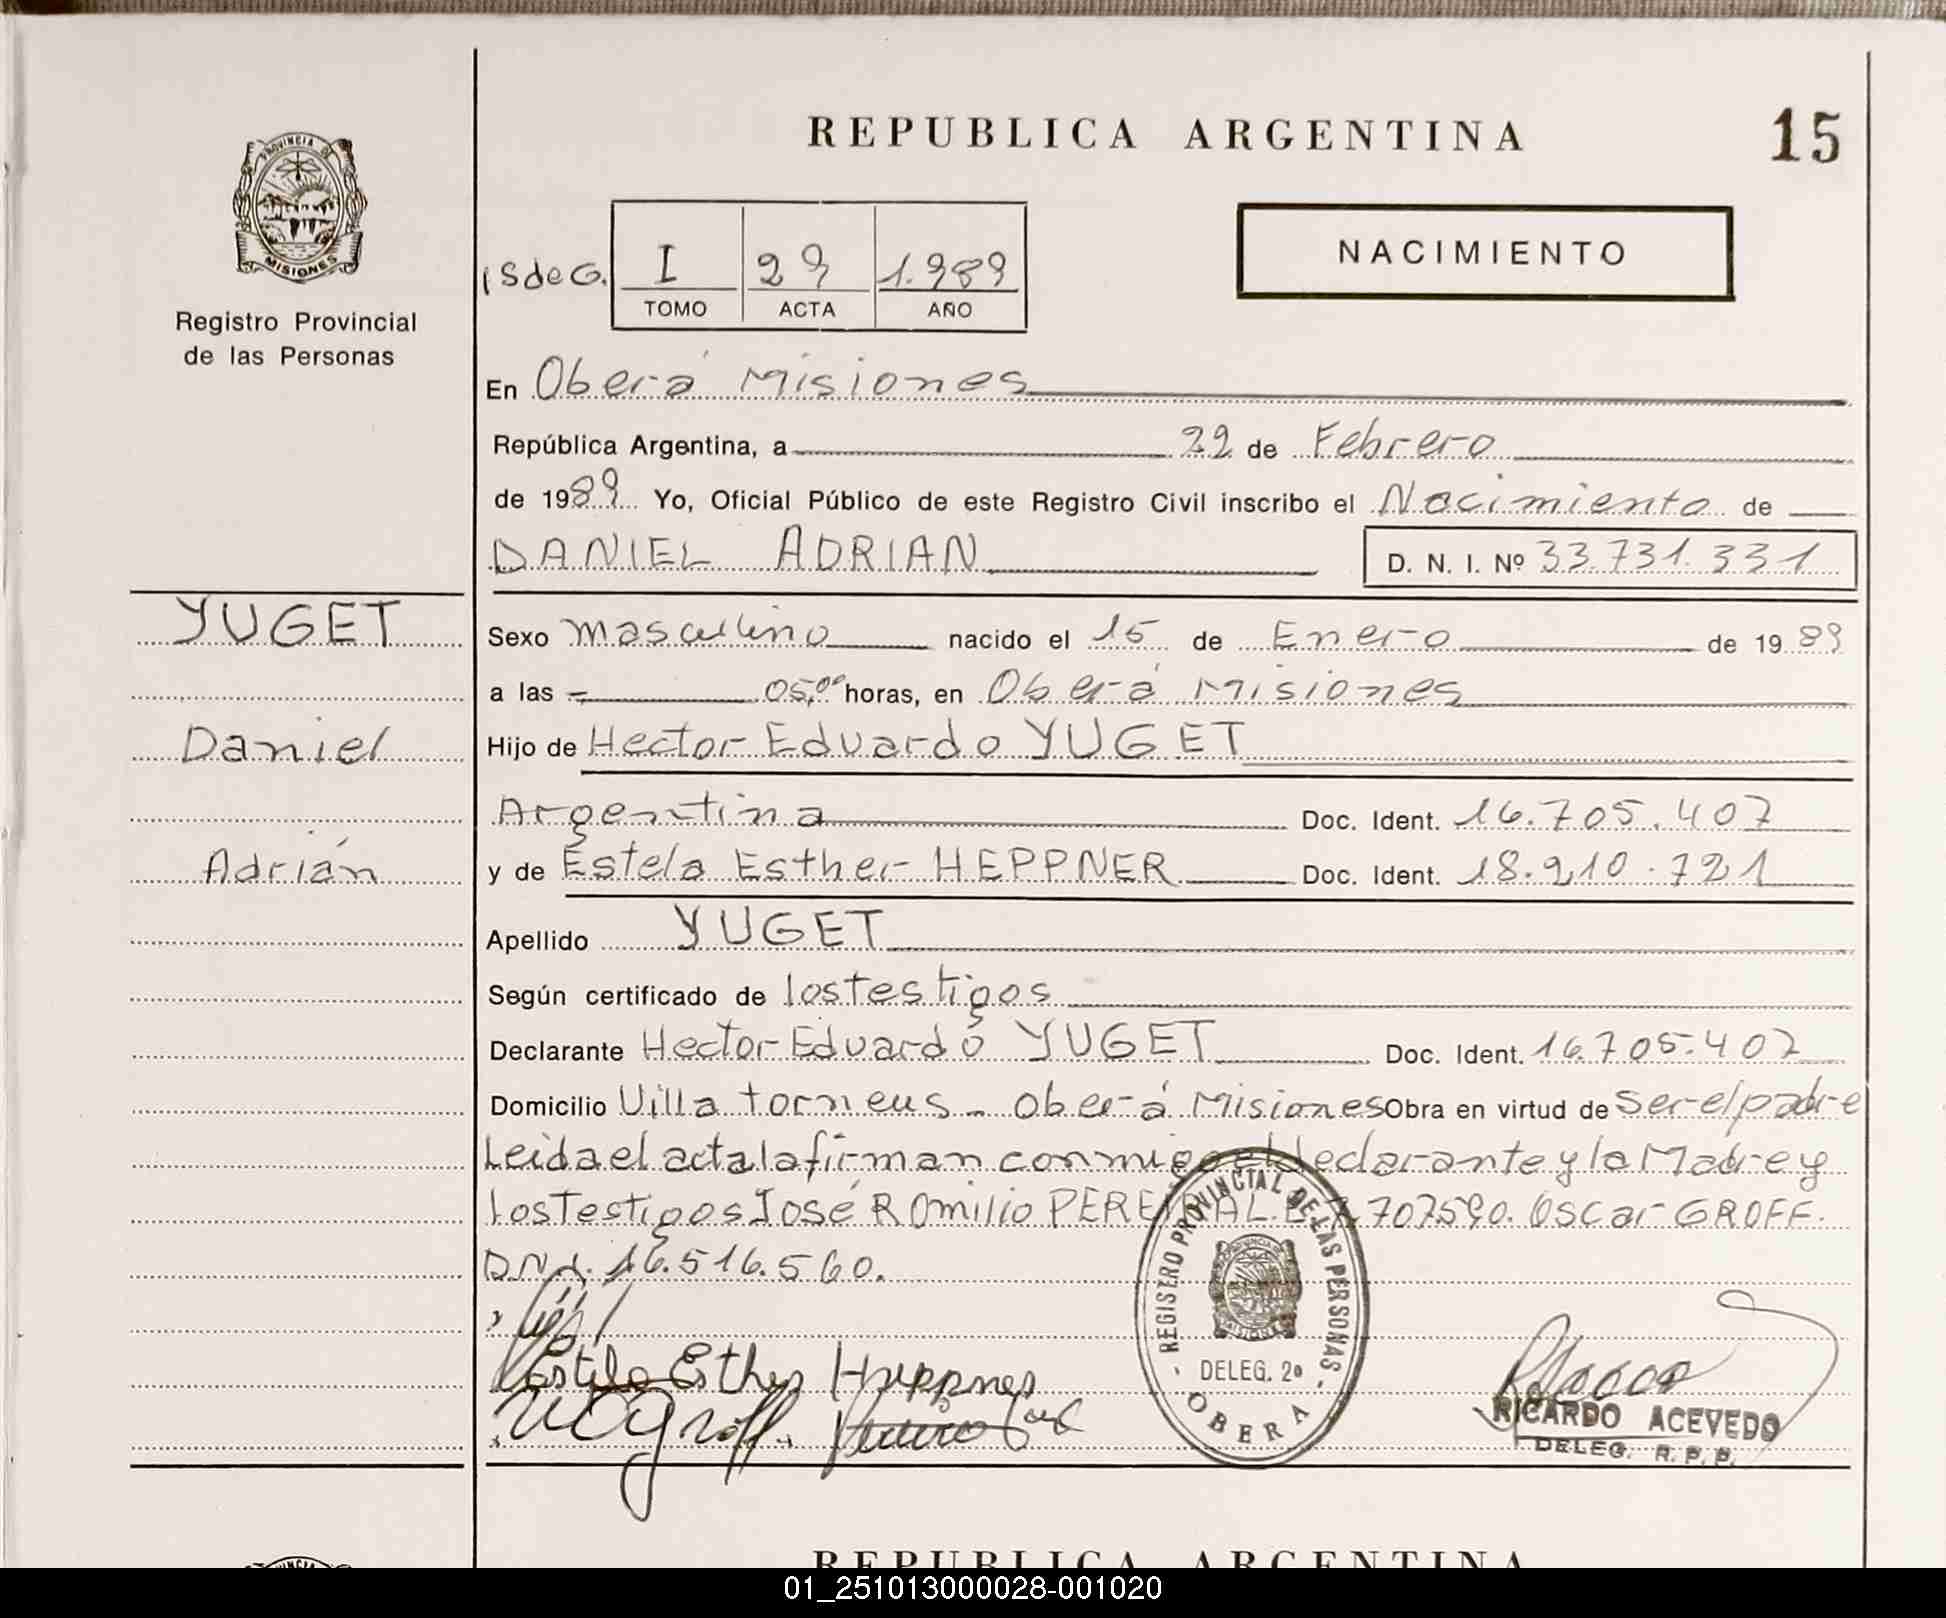 REPUBLICA ARGENTINA
15
PROVINCIA DE
MISIONES
Registro Provincial
de las Personas
NACIMIENTO
I 29 1.989
TOMO ACTA AÑO
En Oberá Misiones
República Argentina, a 22 de Febrero
de 1989 Yo, Oficial Público de este Registro Civil inscribo el Nacimiento de
DANIEL ADRIAN D. N. I. Nº 33.731.331
YUGET
Daniel
Adrián
Sexo masculino nacido el 15 de Enero de 1989
a las 05,00 horas, en Oberá Misiones
Hijo de Hector Eduardo YUGET
Argentina Doc. Ident. 16.705.407
y de Estela Esther HEPPNER Doc. Ident. 18.210.721
Apellido YUGET
Según certificado de los testigos
Declarante Hector Eduardo YUGET Doc. Ident. 16.705.407
Domicilio Villa torneus - Oberá Misiones Obra en virtud de Ser el padre
Leida el acta la firman conmigo el declarante y la Madre y
los Testigos José ROmilio PEREIRA L.E. 7.707590. Oscar GROFF.
DNI. 16.516.560.
Estela Esther Heppner
REGISTRO PROVINCIAL DE LAS PERSONAS
MISIONES
DELEG. 2º
OBERA
RICARDO ACEVEDO
DELEG. R. P. P.
REPUBLICA ARGENTINA
01_251013000028-001020